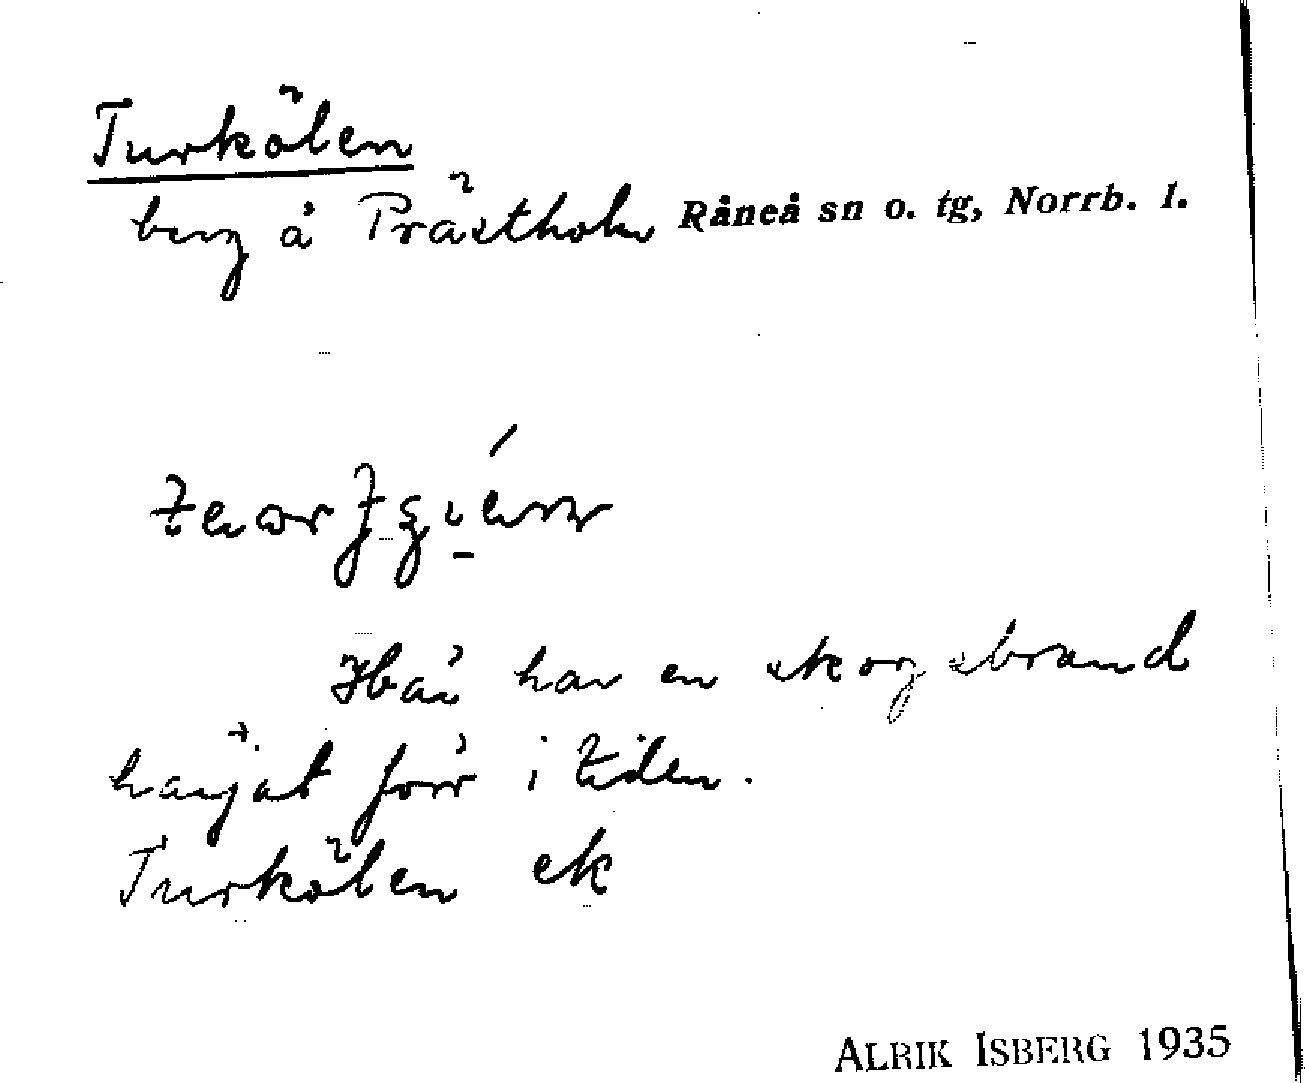 Turkölen
berg å Prästholm Råneå sn o. tg, Norrb. l.
Härå har en skogsbrand
härjat förr i tiden.
Turkölen ek
ALRIK ISBERG 1935